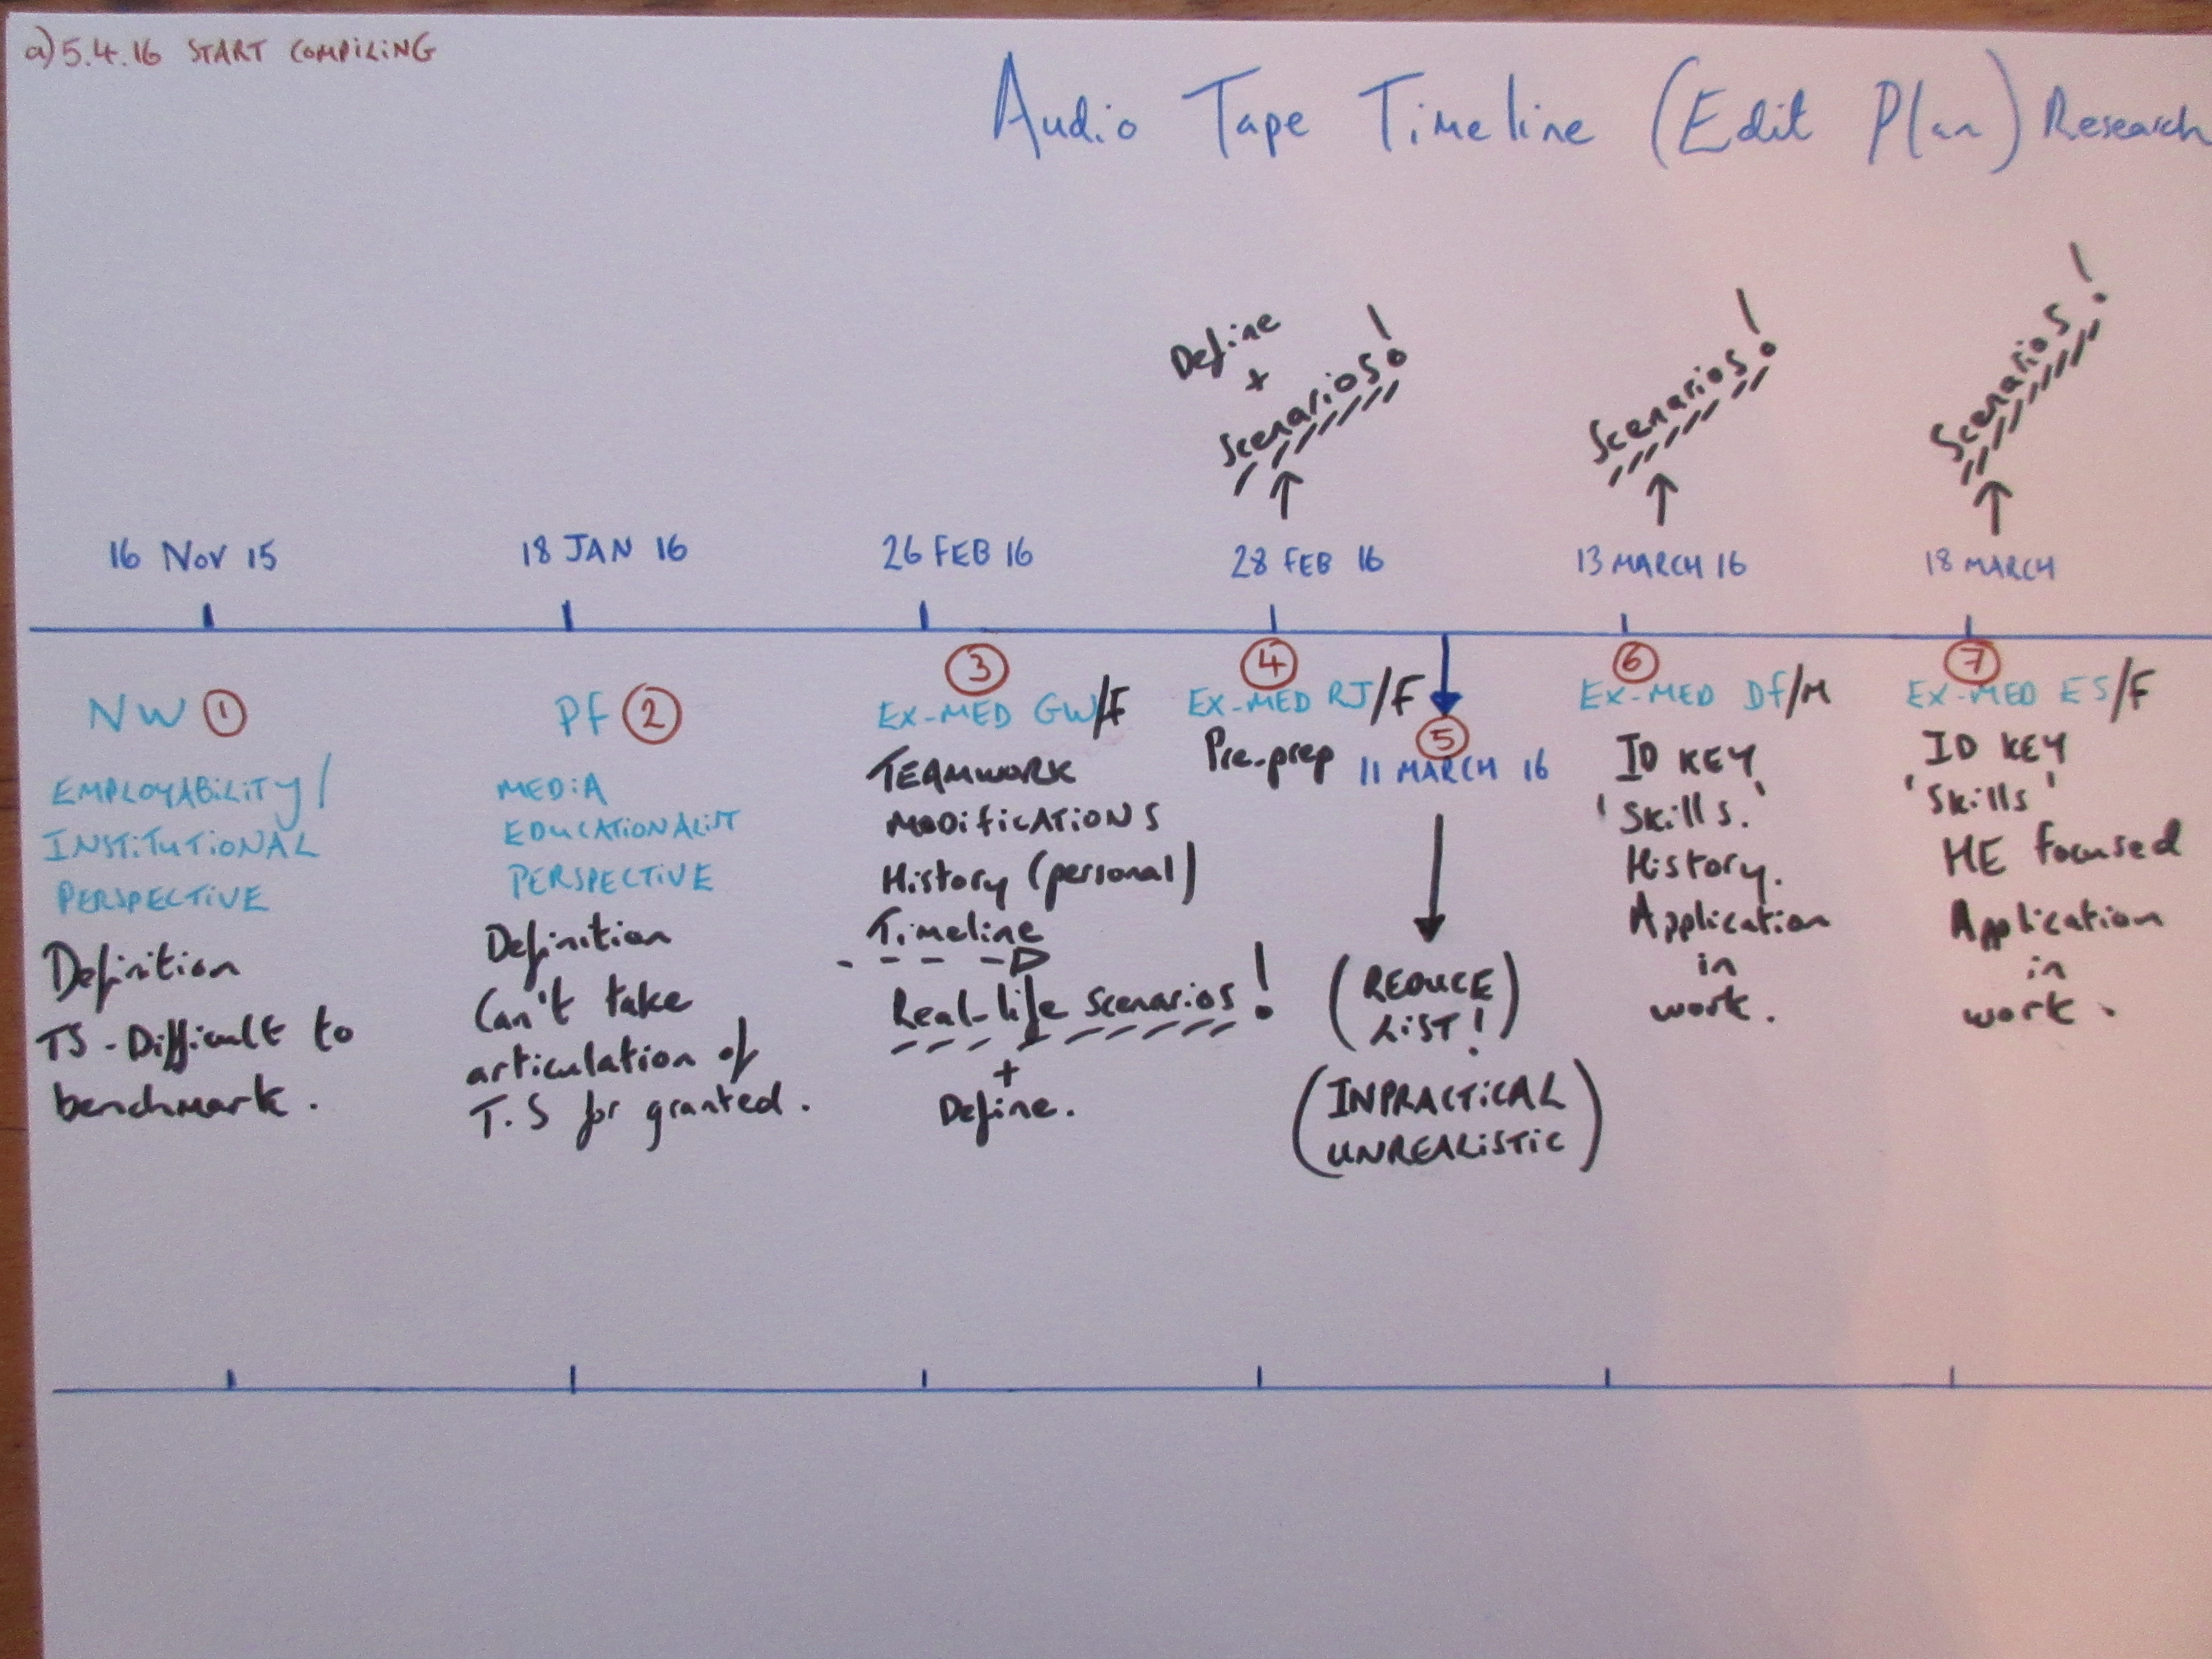 a) 5.4.16 START COMPILING
Audio Tape Timeline (Edit Plan) Research
Define
+
Scenarios!
Scenarios!
Scenarios!
16 Nov 15
18 JAN 16
26 FEB 16
28 FEB 16
13 MARCH 16
18 MARCH
NW 1
EMPLOYABILITY/
INSTITUTIONAL
PERSPECTIVE
Definition
TS - Difficult to
benchmark.
PF 2
MEDIA
EDUCATIONALIST
PERSPECTIVE
Definition
Can't take
articulation of
T.S for granted.
3
EX-MED GW/F
TEAMWORK
MODIFICATIONS
History (personal)
Timeline
Real-life scenarios!
+
Define.
4
EX-MED RJ/F
Pre-prep
5
11 MARCH 16
(REDUCE
LIST!)
(INPRACTICAL
UNREALISTIC)
6
EX-MED DF/M
ID KEY
'Skills.'
History.
Application
in
work.
7
EX-MED ES/F
ID KEY
'Skills'
HE focused
Application
in
work.